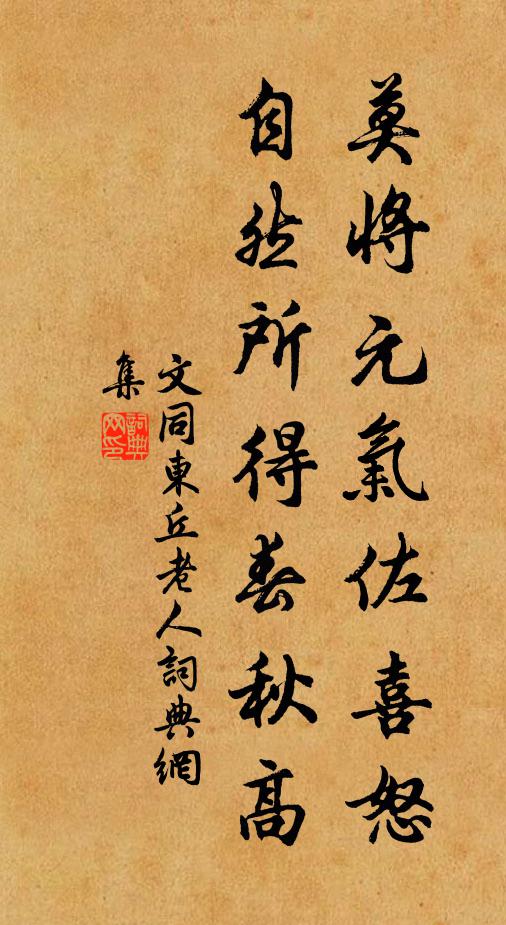 莫將元氣佐喜怒
自然所得春秋高
文同東丘老人詞典網
集
詞典網印